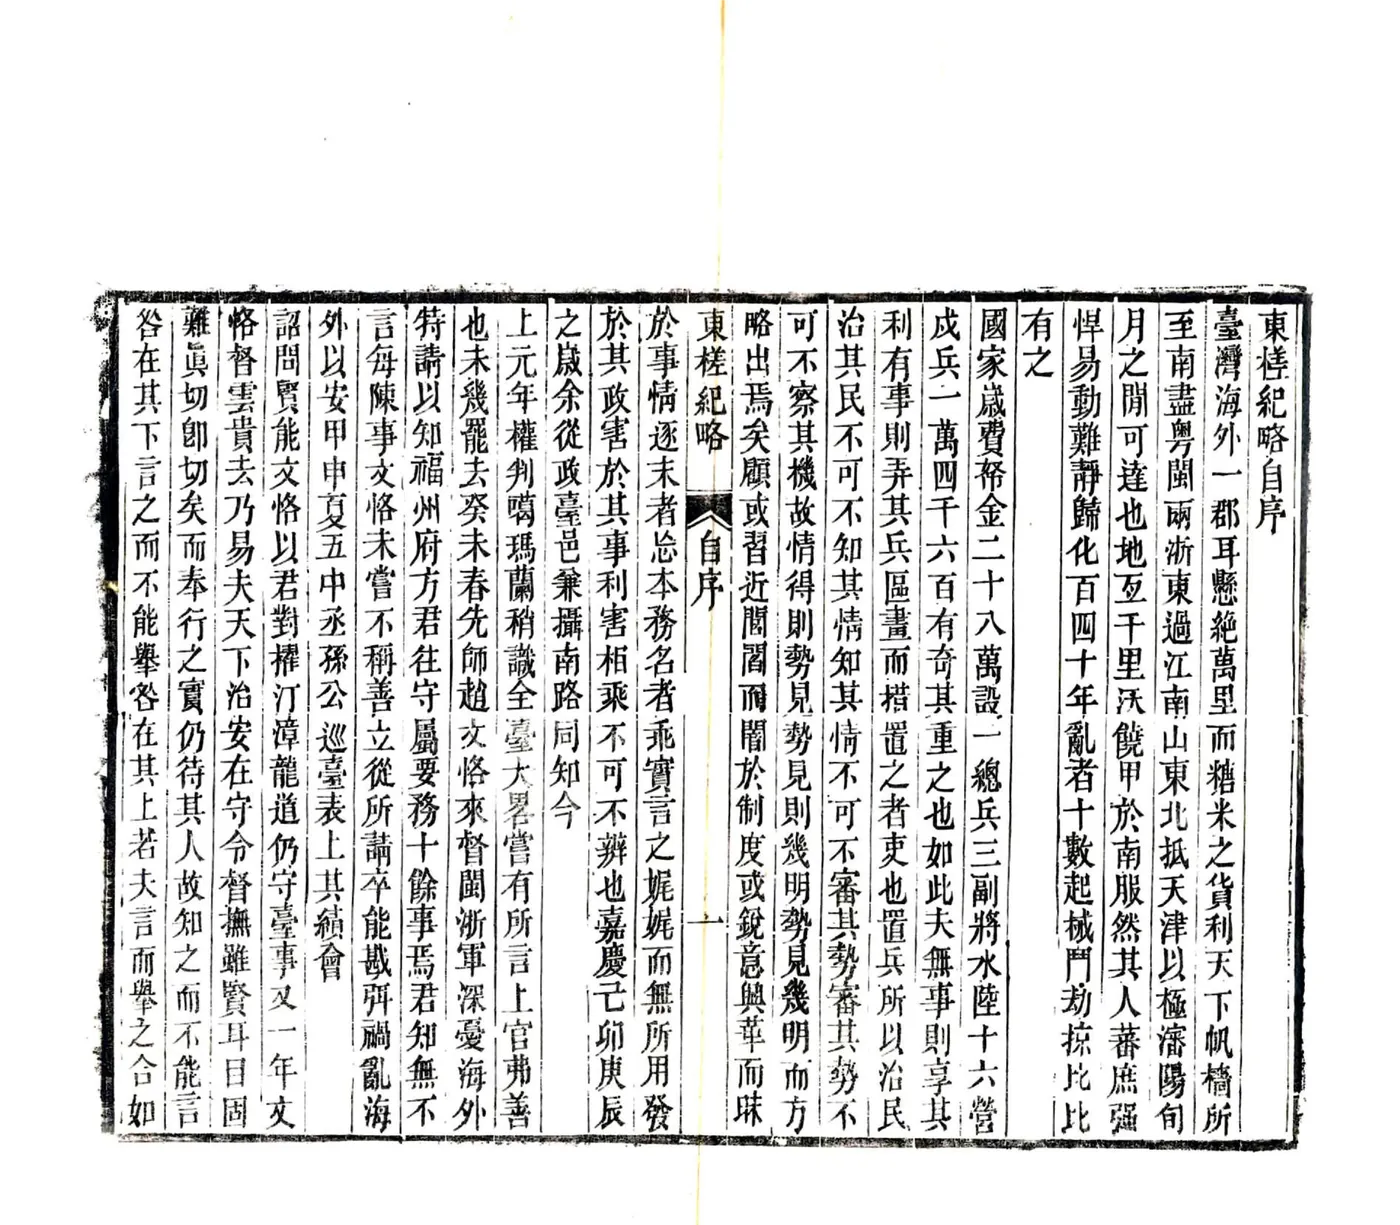 東槎紀略自序
臺灣海外一郡耳懸絶萬里而糖米之貨利天下帆檣所
至南盡粤閩兩浙東過江南山東北抵天津以極瀋陽旬
月之閒可達也地亙千里沃饒甲於南服然其人蕃庶强
悍易動難靜歸化百四十年亂者十數起械鬥劫掠比比
有之
國家歲費帑金二十八萬設一總兵三副將水陸十六營
戍兵一萬四千六百有奇其重之也如此夫無事則享其
利有事則弄其兵區畫而措置之者吏也置兵所以治民
治其民不可不知其情知其情不可不審其勢審其勢不
可不察其機故情得則勢見勢見則幾明勢見幾明而方
略出焉矣顧或習近閭閻而闇於制度或銳意興革而昧
東槎紀略
自序
一
於事情逐末者忘本務名者乖實言之娓娓而無所用發
於其政害於其事利害相乘不可不辨也嘉慶己卯庚辰
之歲余從政臺邑兼攝南路同知今
上元年權判噶瑪蘭稍識全臺大畧嘗有所言上官弗善
也未幾罷去癸未春先師趙文恪來督閩浙軍深憂海外
特請以知福州府方君往守屬要務十餘事焉君知無不
言每陳事文恪未嘗不稱善立從所請卒能戡弭禍亂海
外以安甲申夏五中丞孫公巡臺表上其績會
詔問賢能文恪以君對擢汀漳龍道仍守臺事又一年文
恪督雲貴去乃易夫天下治安在守令督撫雖賢耳目固
難眞切卽切矣而奉行之實仍待其人故知之而不能言
咎在其下言之而不能擧咎在其上若夫言而擧之合如